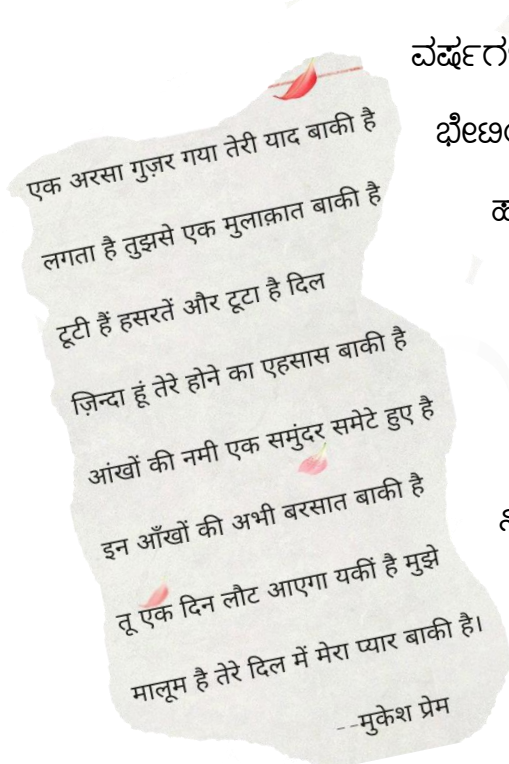 एक अरसा गुज़र गया तेरी याद बाकी है
लगता है तुझसे एक मुलाक़ात बाकी है
टूटी हैं हसरतें और टूटा है दिल
ज़िन्दा हूं तेरे होने का एहसास बाकी है
आंखों की नमी एक समुंदर समेटे हुए है
इन आँखों की अभी बरसात बाकी है
तू एक दिन लौट आएगा यकीं है मुझे
मालूम है तेरे दिल में मेरा प्यार बाकी है।
--मुकेश प्रेम